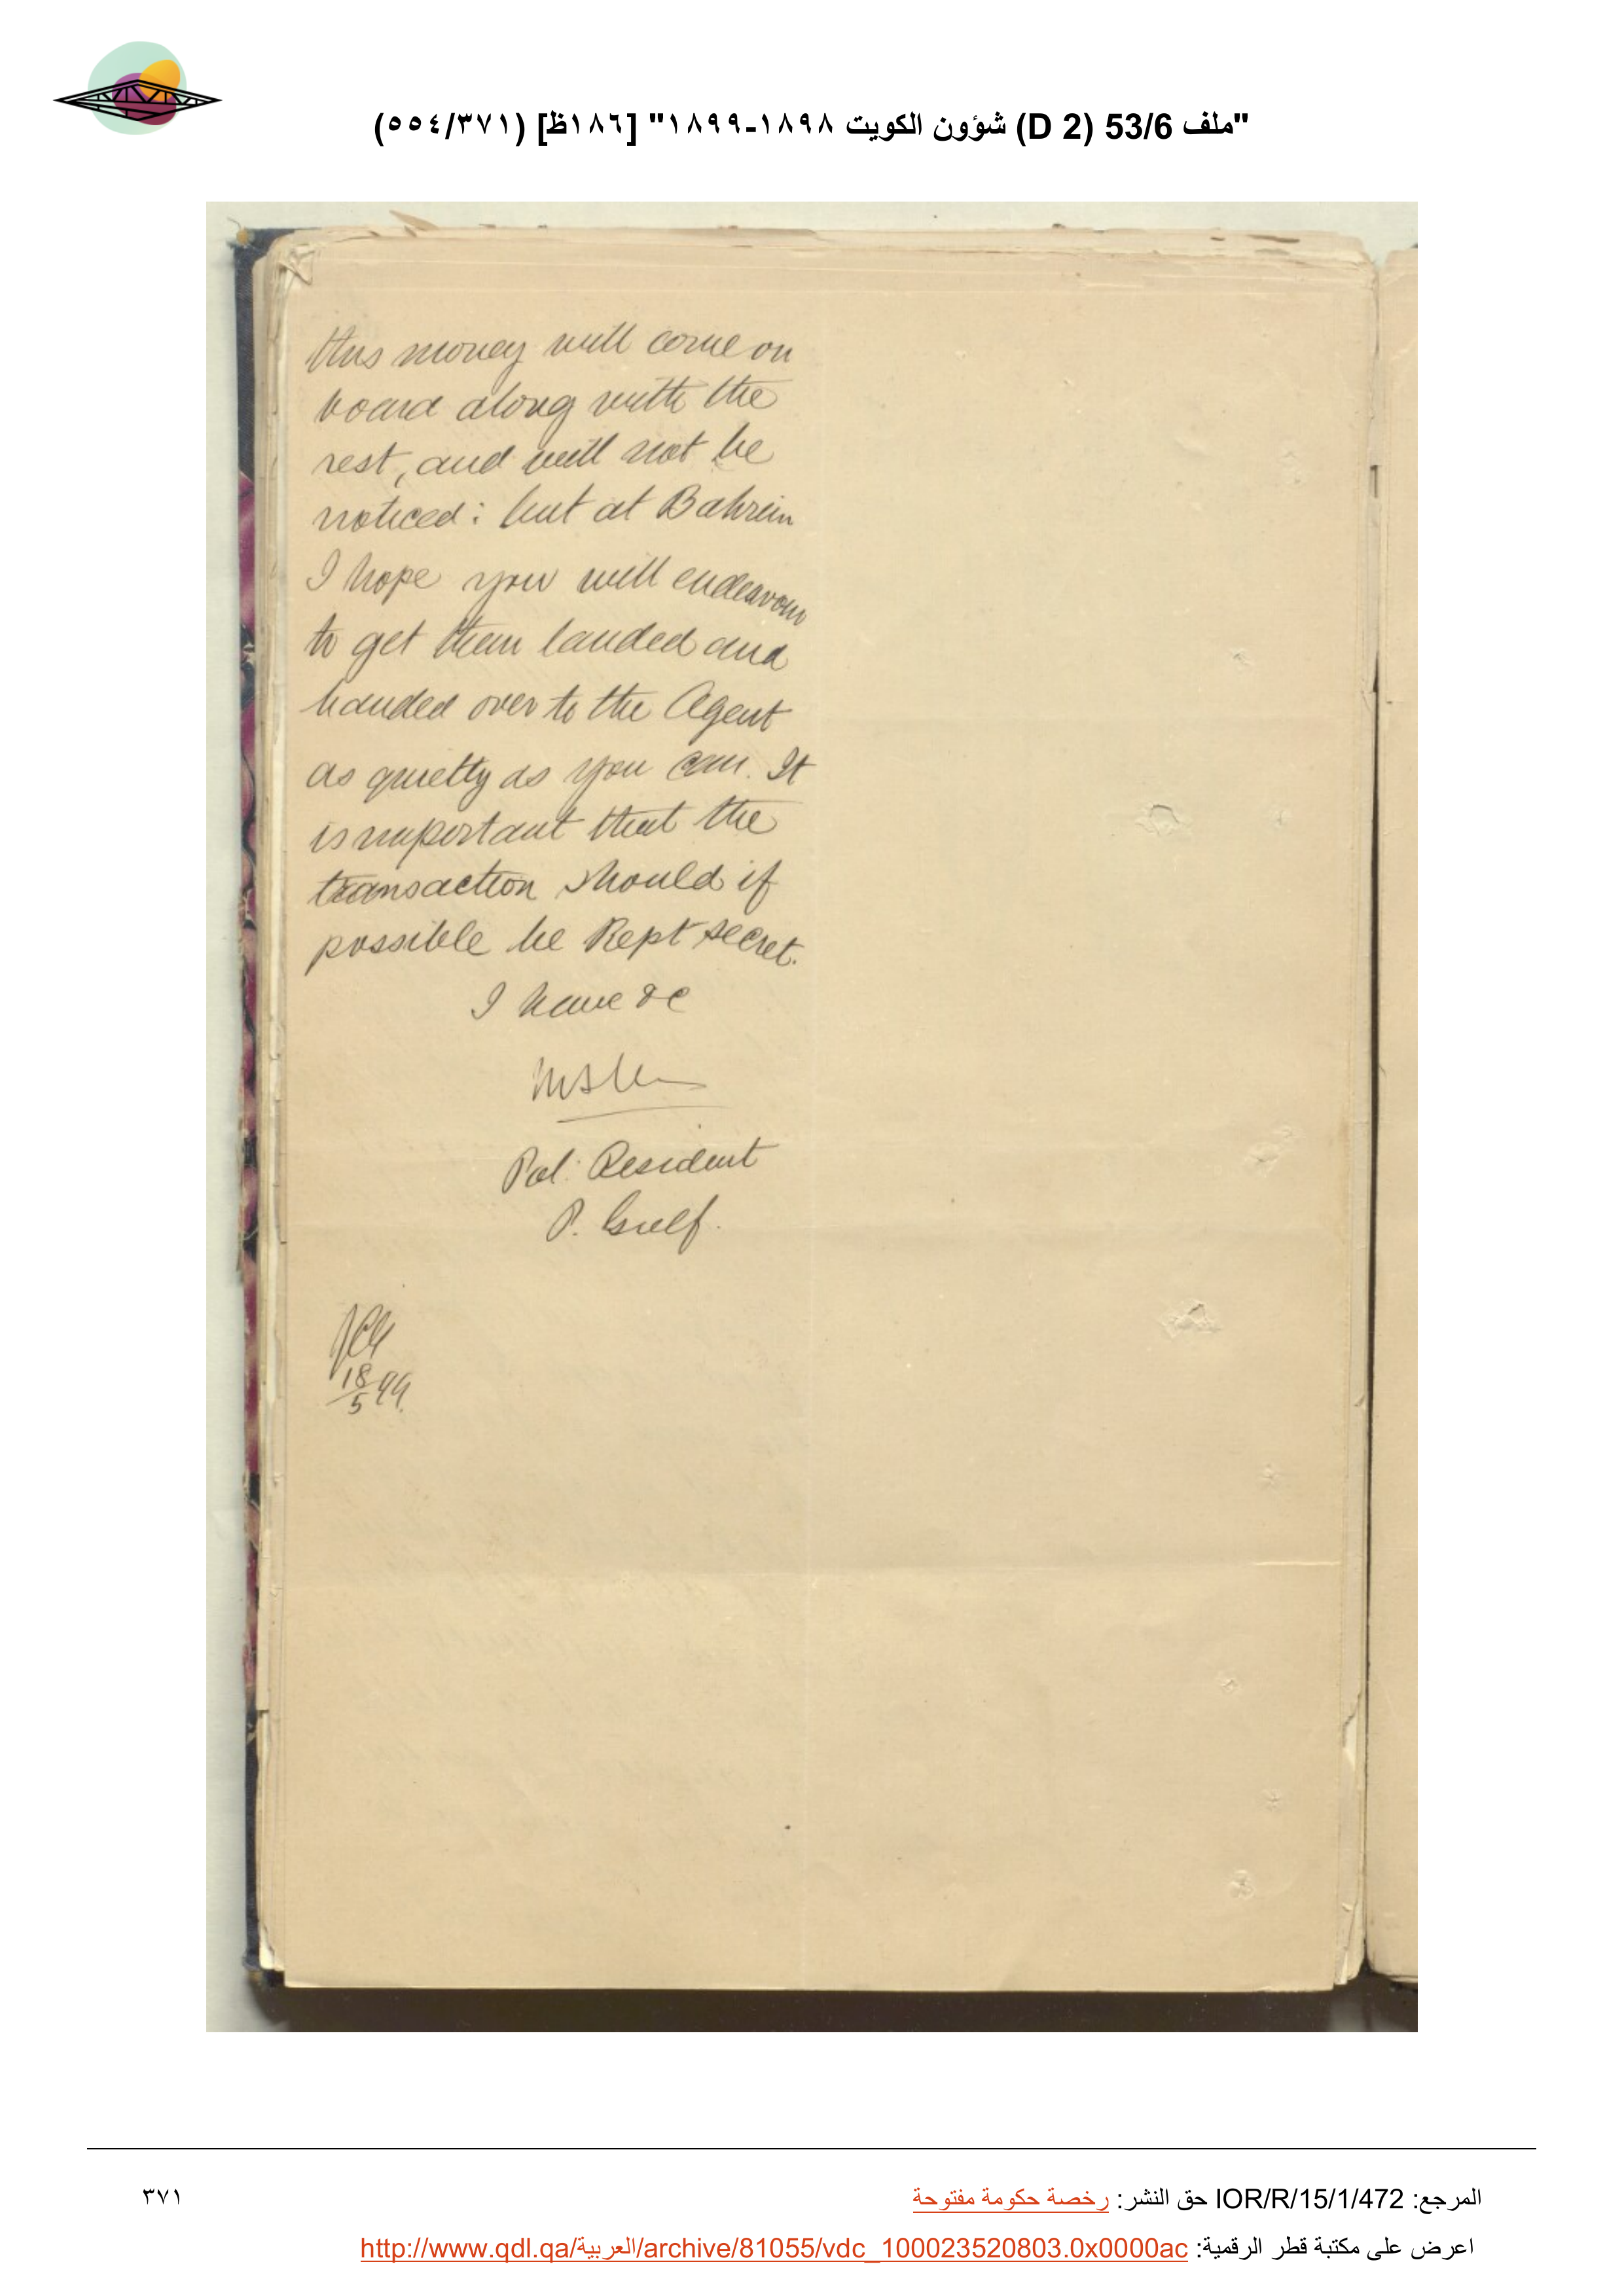 "ملف 53/6 (D 2) شؤون الكويت ١٨٩٨-١٨٩٩" [١٨٦ظ] (٥٥٤/٣٧١)
this money will come on
board along with the
rest, and will not be
noticed: but at Bahrein
I hope you will endeavour
to get them landed and
handed over to the Agent
as quietly as you can. It
is important that the
transaction should if
possible be Kept secret.
I have &c
Pol: Resident
P. Gulf.
18/5 99.
المرجع: IOR/R/15/1/472 حق النشر: رخصة حكومة مفتوحة
٣٧١
اعرض على مكتبة قطر الرقمية: http://www.qdl.qa/العربية/archive/81055/vdc_100023520803.0x0000ac